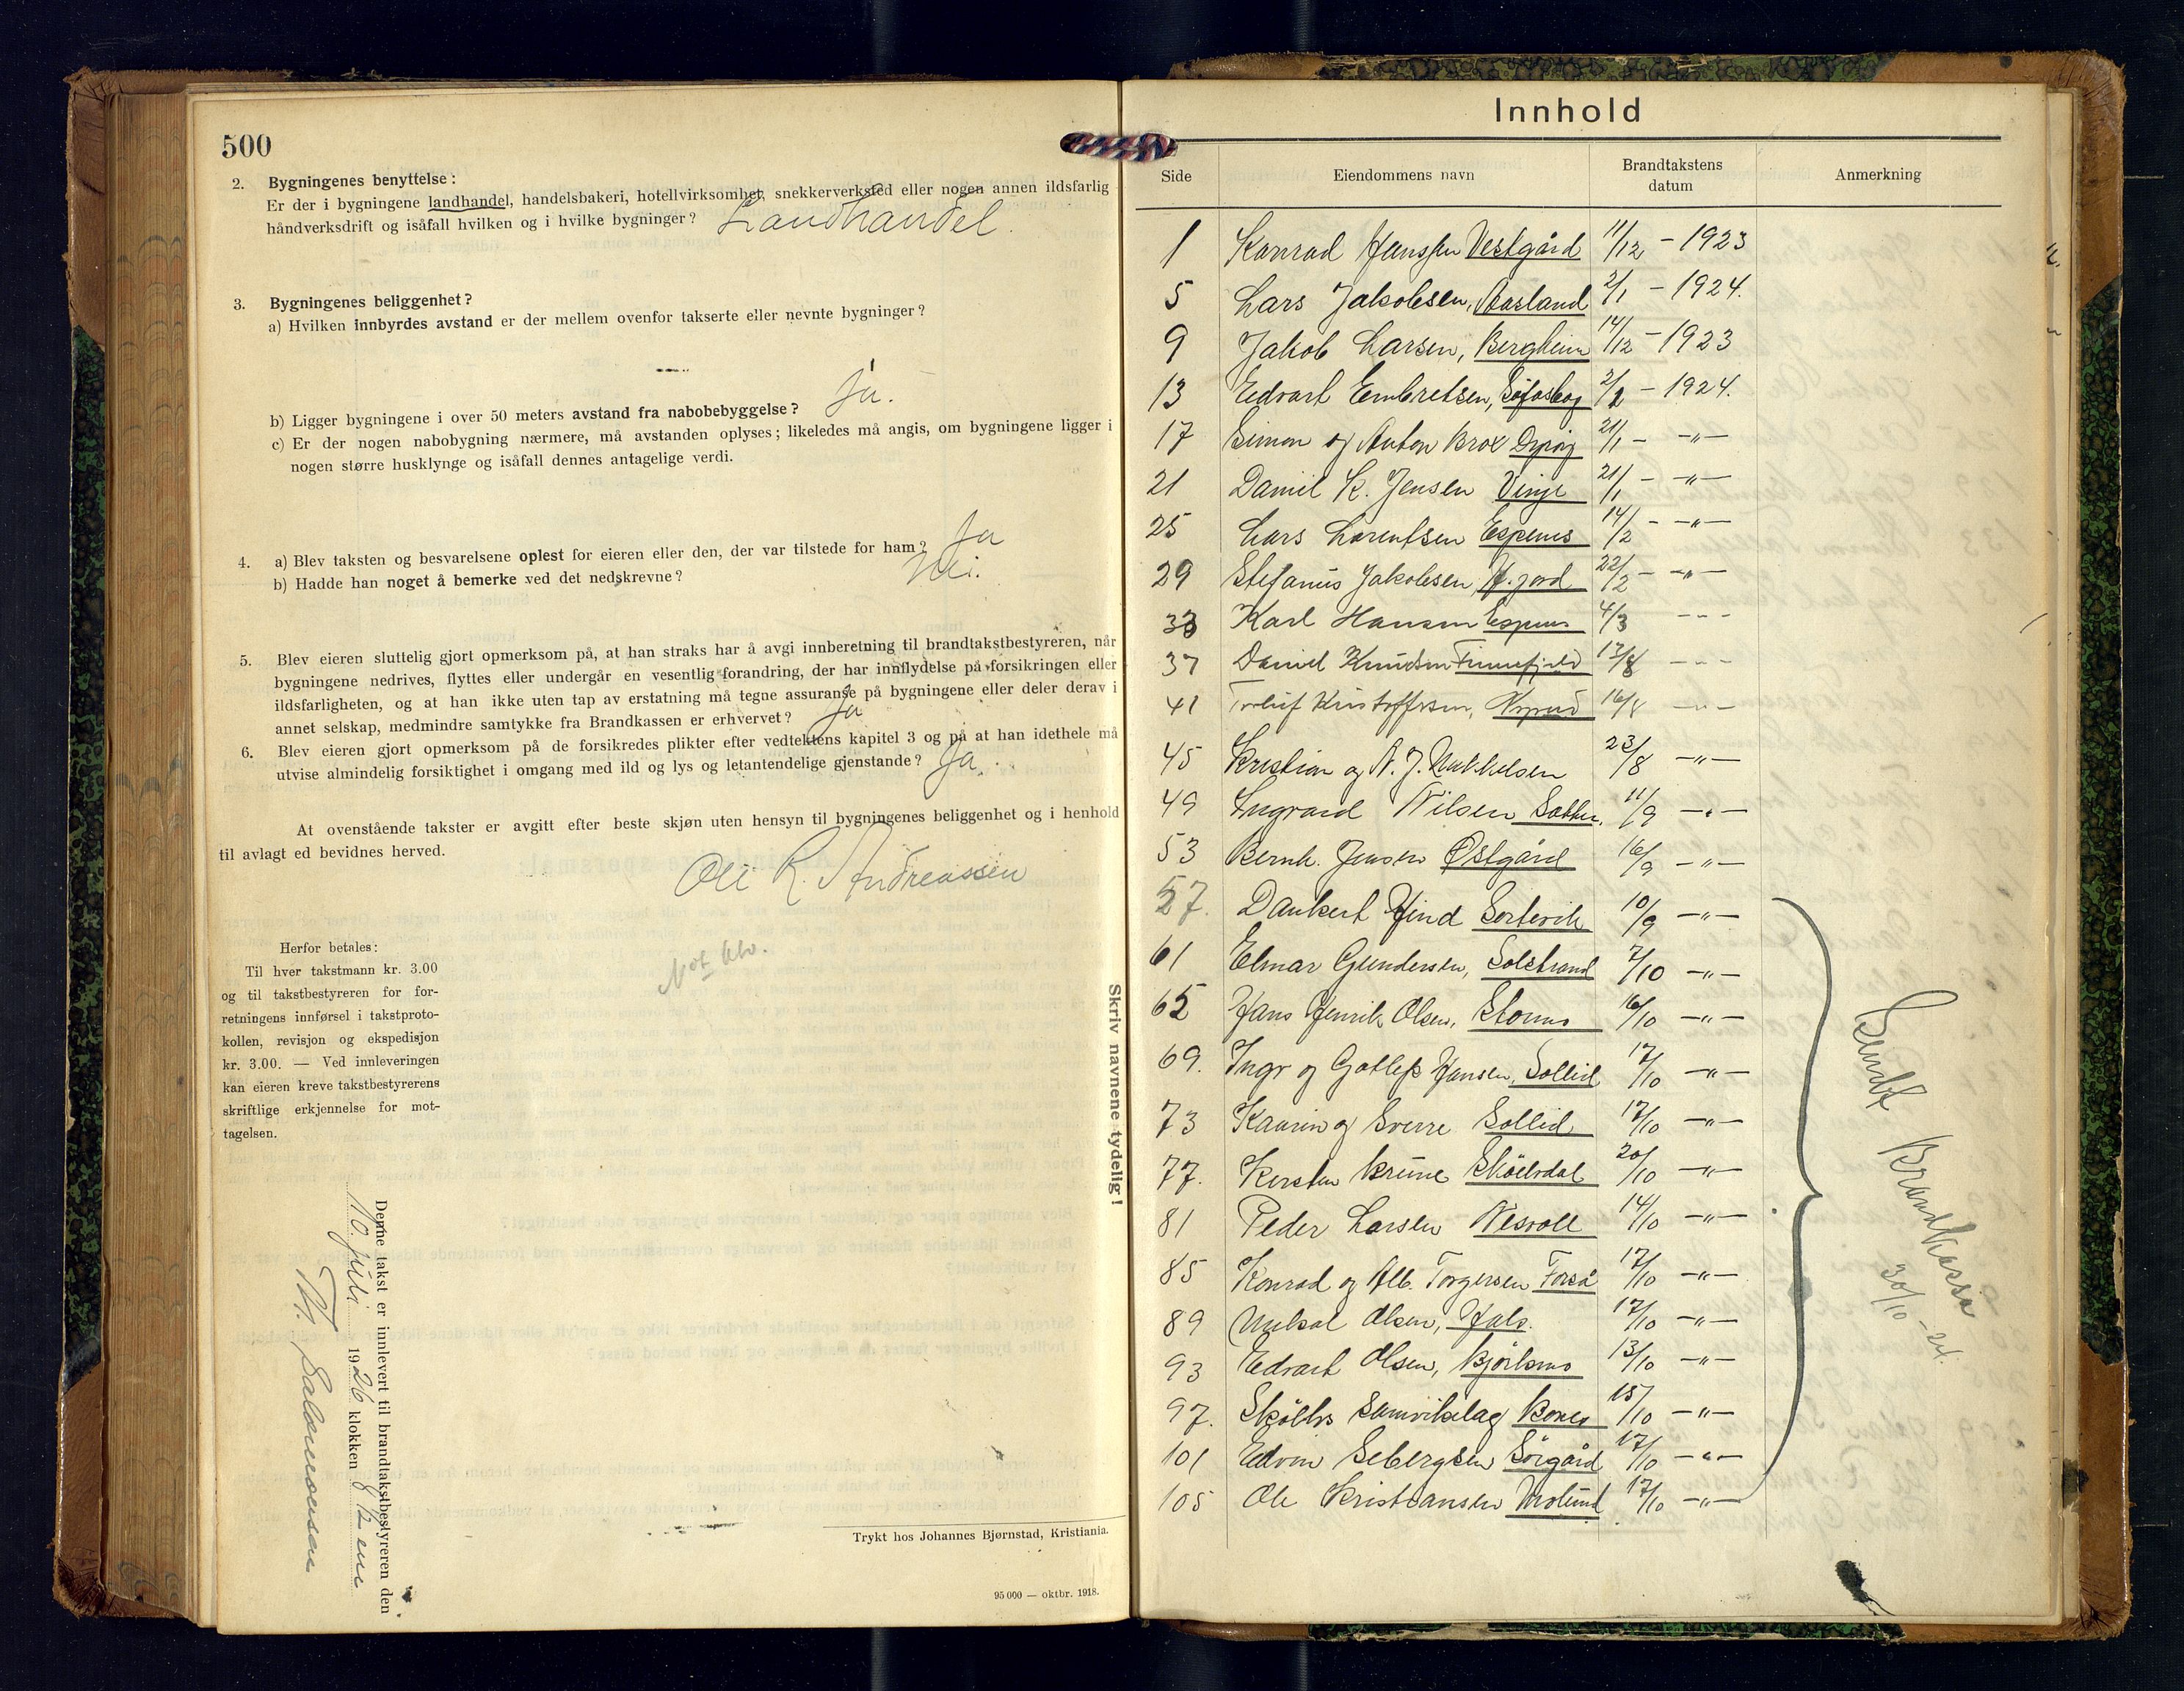 500
2. Bygningenes benyttelse:
Er der i bygningene landhandel, handelsbakeri, hotellvirksomhet, snekkerverksted eller nogen annen ildsfarlig
håndverksdrift og isåfall hvilken og i hvilke bygninger? Landhandel.
3. Bygningenes beliggenhet?
a) Hvilken innbyrdes avstand er der mellem ovenfor takserte eller nevnte bygninger?
b) Ligger bygningene i over 50 meters avstand fra nabobebyggelse? Ja.
c) Er der nogen nabobygning nærmere, må avstanden oplyses; likeledes må angis, om bygningene ligger i
nogen større husklynge og isåfall dennes antagelige verdi.
4. a) Blev taksten og besvarelsene oplest for eieren eller den, der var tilstede for ham? Ja
b) Hadde han noget å bemerke ved det nedskrevne? Nei.
5. Blev eieren sluttelig gjort opmerksom på, at han straks har å avgi innberetning til brandtakstbestyreren, når
bygningene nedrives, flyttes eller undergår en vesentlig forandring, der har innflydelse på forsikringen eller
ildsfarligheten, og at han ikke uten tap av erstatning må tegne assuranse på bygningene eller deler derav i
annet selskap, medmindre samtykke fra Brandkassen er erhvervet? Ja
6. Blev eieren gjort opmerksom på de forsikredes plikter efter vedtektens kapitel 3 og på at han idethele må
utvise almindelig forsiktighet i omgang med ild og lys og letantendelige gjenstande? Ja.
At ovenstående takster er avgitt efter beste skjøn uten hensyn til bygningenes beliggenhet og i henhold
til avlagt ed bevidnes herved.
Ole R. Andreassen
Herfor betales:
Til hver takstmann kr. 3.00
og til takstbestyreren for for-
retningens innførsel i takstproto-
kollen, revisjon og ekspedisjon
kr. 3.00. — Ved innleveringen
kan eieren kreve takstbestyrerens
skriftlige erkjennelse for mot-
tagelsen.
Denne takst er innlevert til brandtakstbestyreren den
10. juli 1926 klokken 8½ em
Th. Salomonsen
Skriv navnene tydelig!
Trykt hos Johannes Bjørnstad, Kristiania.
95 000 — oktbr. 1918.
Innhold
Side Eiendommens navn Brandtakstens datum Anmerkning
1 Konrad Hanssen Vestgård 11/12 - 1923
5 Lars Jakobsen, Aasland 2/1 - 1924.
9 Jakob Larsen, Bergheim 14/12 - 1923
13 Edvart Embretsen, 2/2 - 1924.
17 Simon og Anton Brox 21/1 - -"-
21 Daniel K. Jensen Vinje 21/1 - -"-
25 Lars Lorentsen Espenes 14/2 - -"-
29 Stefanus Jakobsen, 22/2 - -"-
33 Karl Hansen Espenes 4/3 -"-
37 Daniel Knudsen Finnefjeld -"-
41 Kristoffersen, 16/8 -"-
45 Kristian og A. J. Mikkelsen 23/8 -"-
49 Ingvard Nilsen 11/9 -"-
53 Bernh. Jensen Østgård 16/9 -"-
57. Dankert Hind Sortevik 10/9 -"-
61 Elmar Gundersen, Solstrand 7/10 -"-
65 Hans Henrik Olsen, Stormo 16/10 -"-
69. Ingv og Gotleb Hansen, Sollid 17/10 -"-
73 Kaurin og Sverre Sollid 17/10 -"-
77. Kersten Krune Skøelvdal 20/10 -"-
81 Peder Larsen Nesvoll 14/10 -"-
85 Konrad og Alb. Torgersen Forså 17/10 -"-
89 Mikal Olsen, Hals. 17/10 -"-
93 Edvart Olsen, Bjørkmo 13/10 -"-
97. Skøelvs Samvirkelag 15/10 -"-
101 Edvin Sebergsen Sørgård 17/10 -"-
105 Ole Kristiansen Molund 17/10 -"-
Sendt Brandkassa
30/10 - 24.